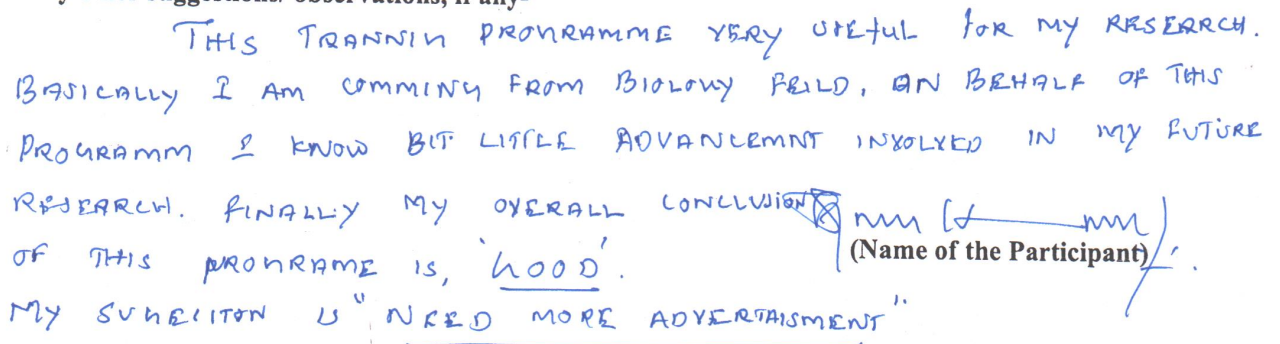 THIS TRANNIN PROGRAMME VERY USEFUL FOR MY RESEARCH.
BASICALLY I AM COMMING FROM BIOLOGY FEILD, ON BEHALF OF THIS
PROGRAMM I KNOW BIT LITTLE ADVANCEMNT INVOLVED IN MY FUTURE
RESEARCH. FINALLY MY OVERALL CONCLUSION
OF THIS PROGRAME IS, 'GOOD'.
(Name of the Participant)
MY SUGECITON IS "NEED MORE ADVERTAISMENT".